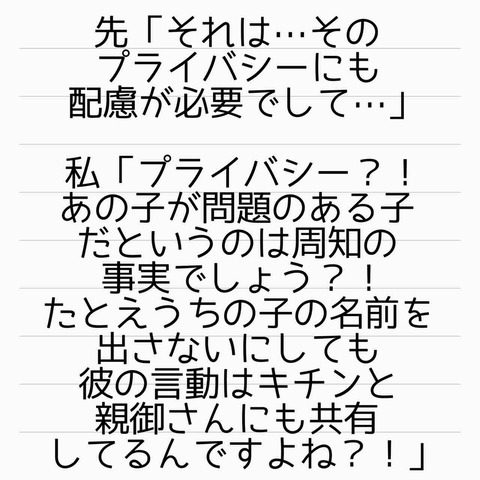 先「それは…その
プライバシーにも
配慮が必要でして…」
私「プライバシー？！
あの子が問題のある子
だというのは周知の
事実でしょう？！
たとえうちの子の名前を
出さないにしても
彼の言動はキチンと
親御さんにも共有
してるんですよね？！」